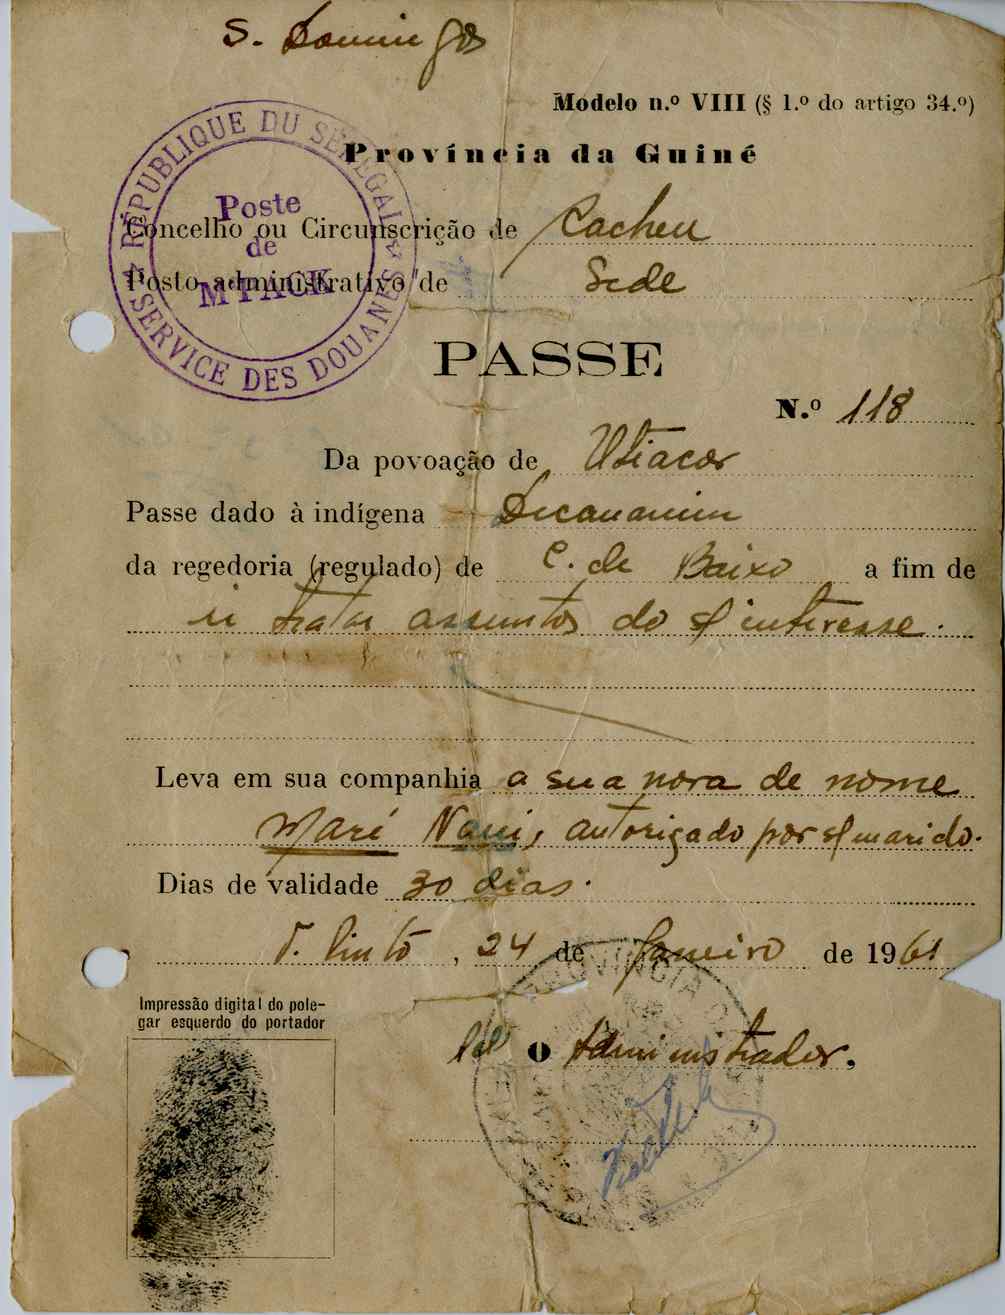 S. Domingos
Modelo n.º VIII (§ 1.º do artigo 34.º)
Província da Guiné
RÉPUBLIQUE DU SÉNÉGAL
SERVICE DES DOUANES
Poste
de
M'PACK
Concelho ou Circunscrição de Cacheu
Posto administrativo de Sede
PASSE
N.º 118
Da povoação de Utiacor
Passe dado à indígena
da regedoria (regulado) de C. de Baixo a fim de
ir tratar assuntos do s/ interesse.
Leva em sua companhia a sua nora de nome
Maré Nani, autorizado por s/ marido.
Dias de validade 30 dias.
T. Pinto, 24 de Janeiro de 1961
Impressão digital do pole-
gar esquerdo do portador
O Administrador,
PROVÍNCIA